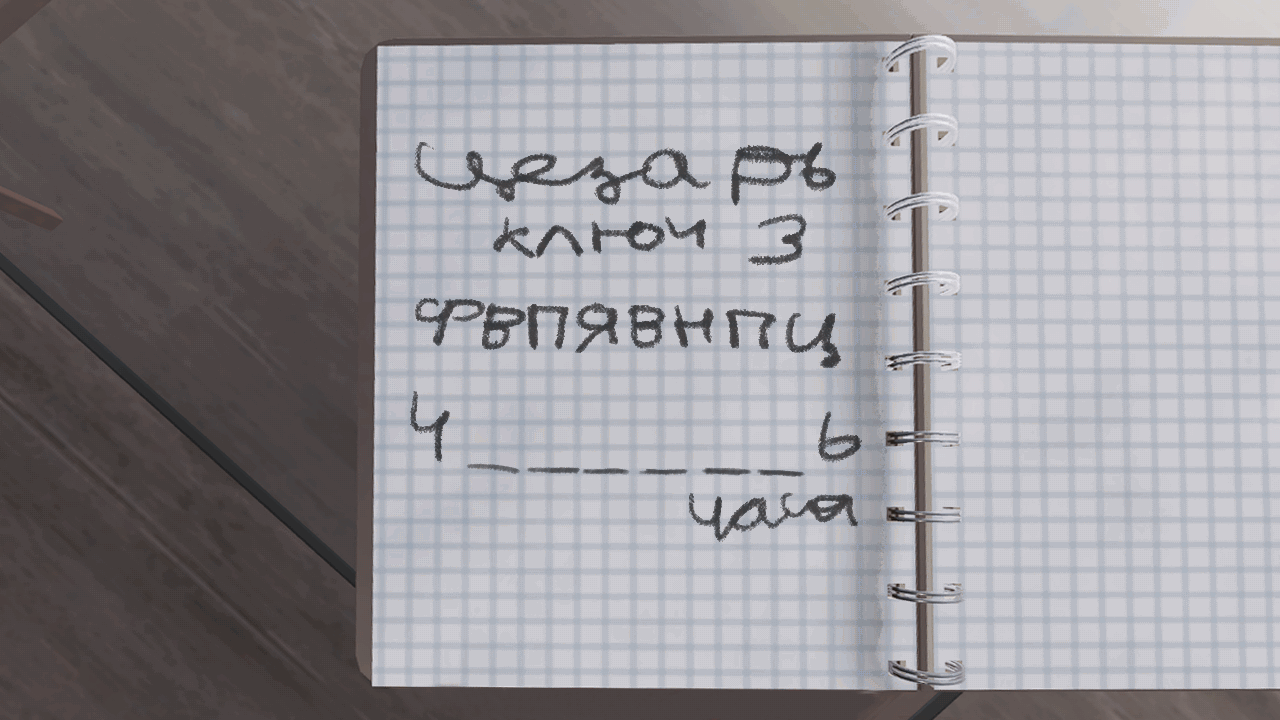 цезарь
ключ 3
ФВПЯВНПЦ
Ч _ _ _ _ _ _ Ь
часа